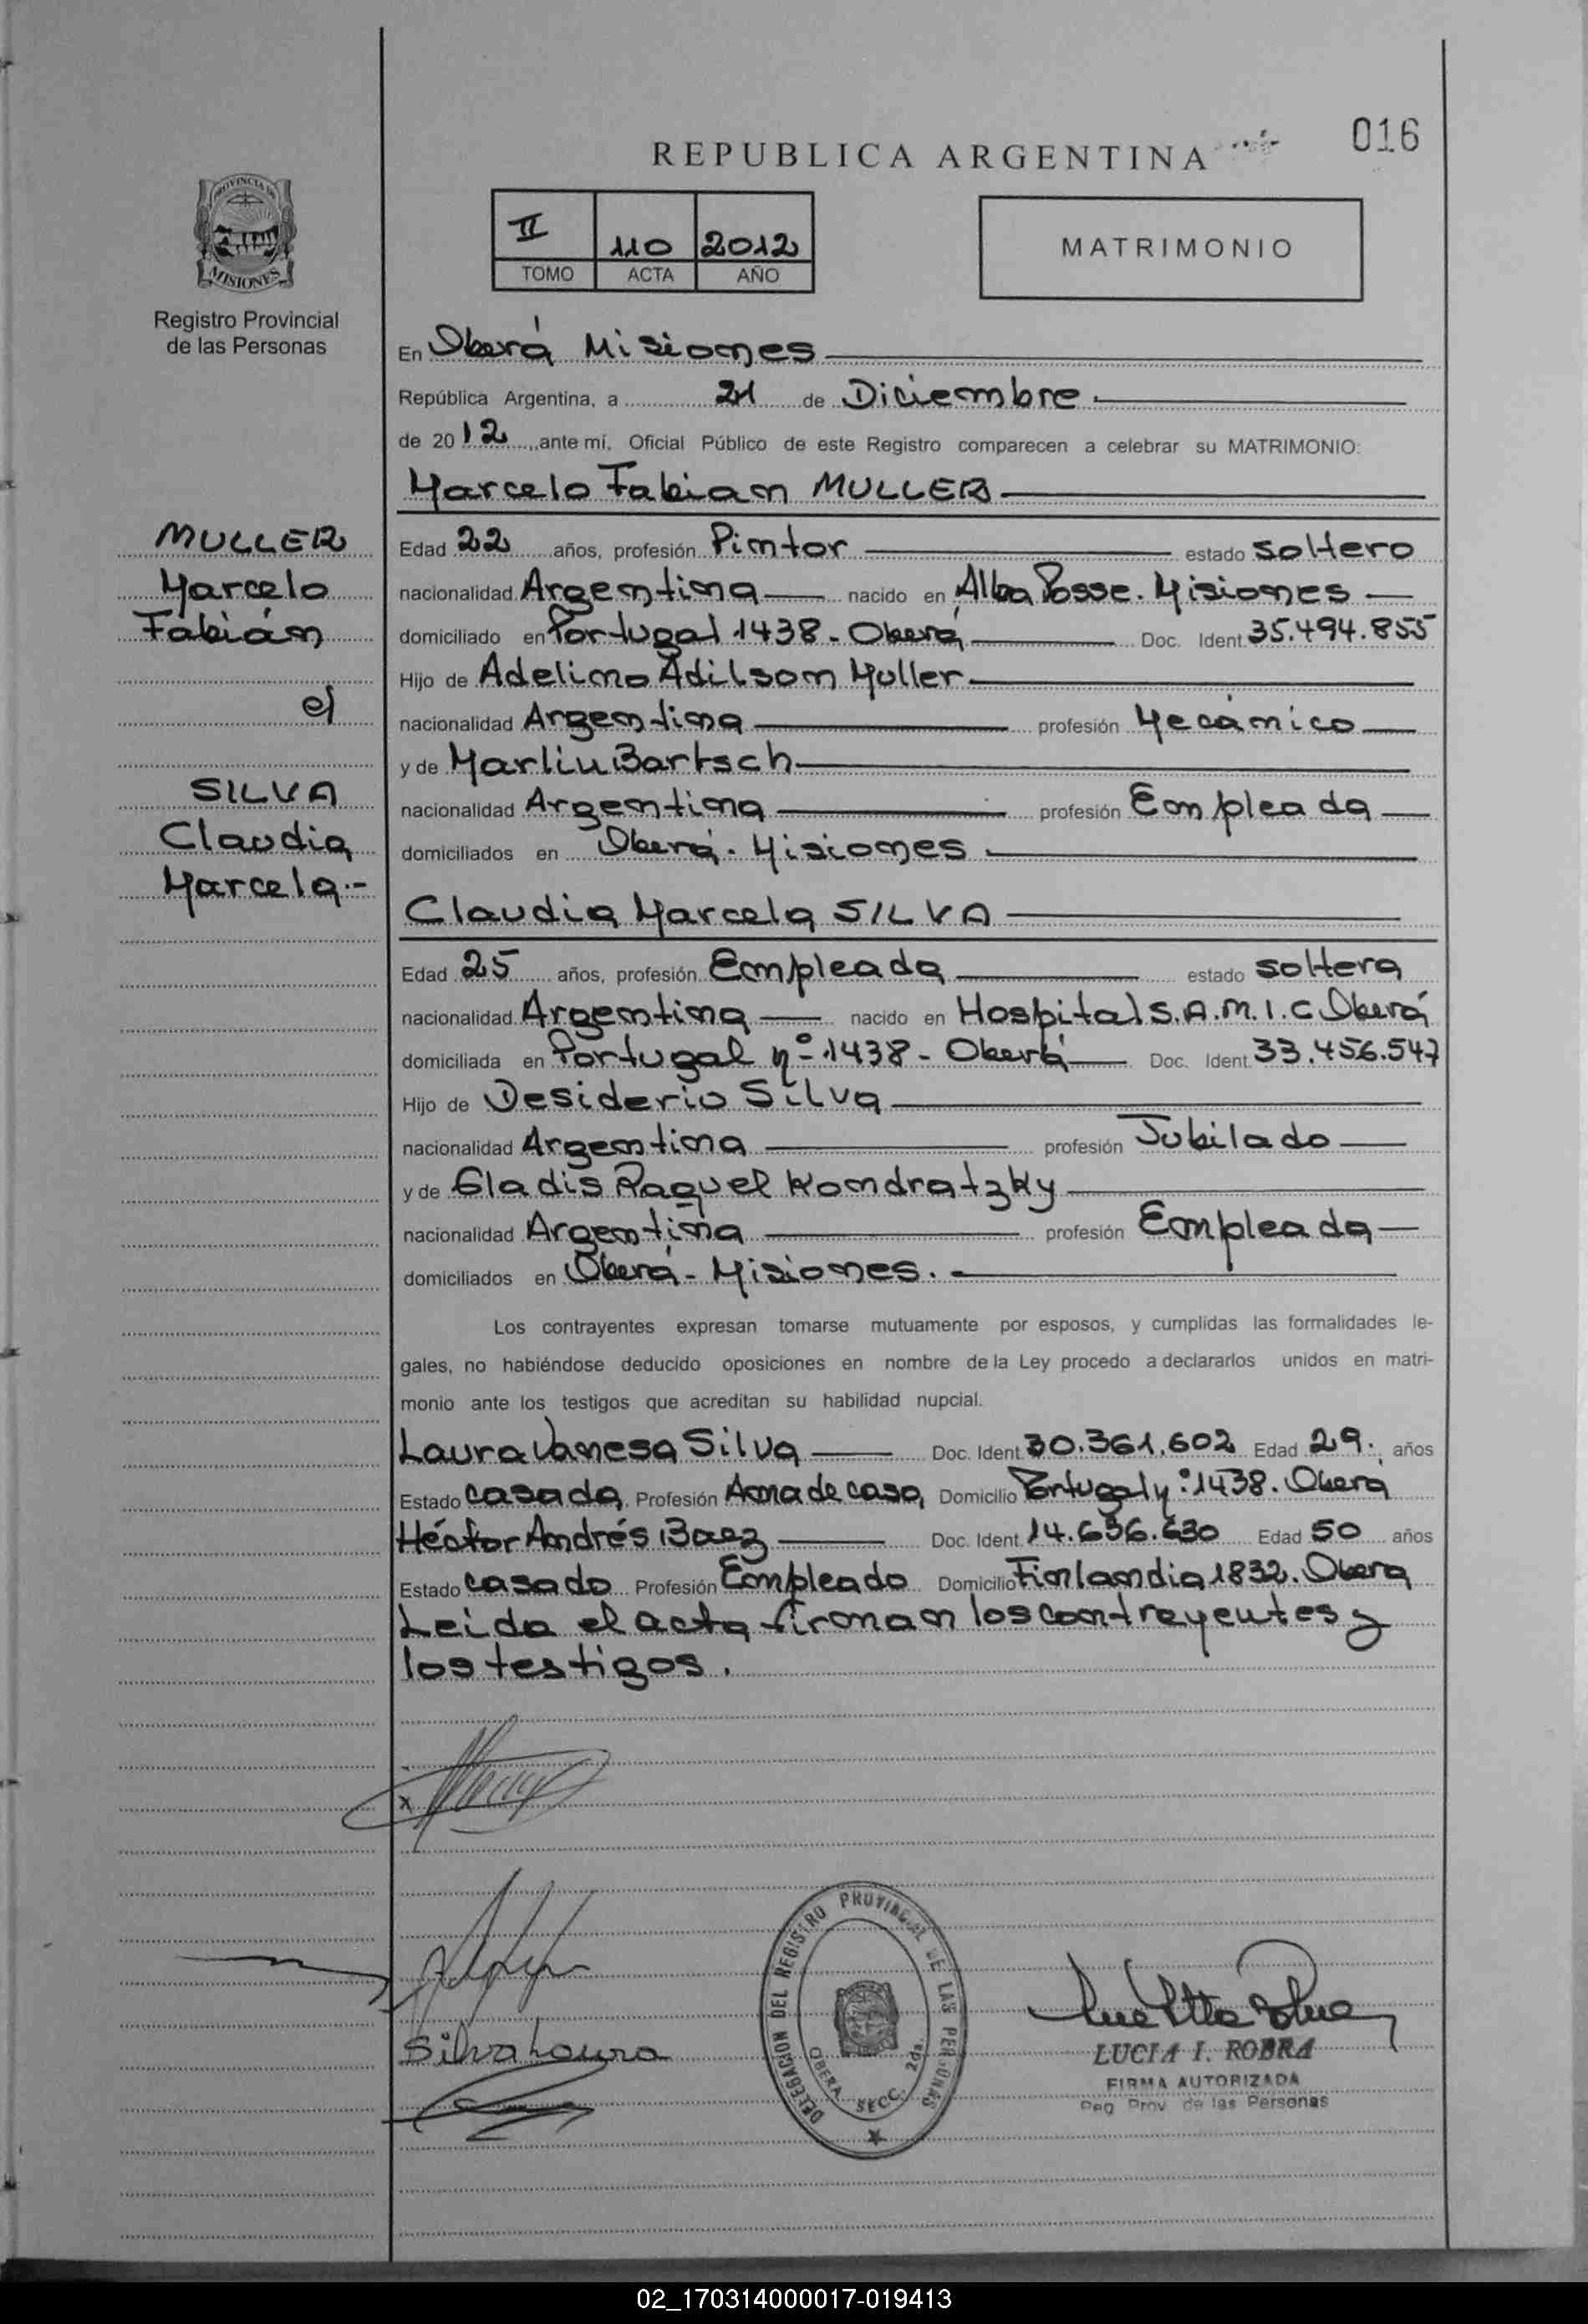 016
REPUBLICA ARGENTINA
PROVINCIA DE
MISIONES
Registro Provincial
de las Personas
II 110 2012
TOMO ACTA AÑO
MATRIMONIO
En Oberá Misiones
República Argentina, a 21 de Diciembre
de 2012, ante mí, Oficial Público de este Registro comparecen a celebrar su MATRIMONIO:
Marcelo Fabian MULLER
MULLER
Marcelo
Fabián
c/
SILVA
Claudia
Marcela.-
Edad 22 años, profesión Pintor estado soltero
nacionalidad Argentina nacido en Alba Posse. Misiones
domiciliado en Portugal 1438 - Oberá Doc. Ident. 35.494.855
Hijo de Adelino Adilson Muller
nacionalidad Argentina profesión Mecánico
y de Marliu Bartsch
nacionalidad Argentina profesión Empleada
domiciliados en Oberá. Misiones
Claudia Marcela SILVA
Edad 25 años, profesión Empleada estado soltera
nacionalidad Argentina nacido en Hospital S.A.M.I.C Oberá
domiciliada en Portugal nº 1438 - Oberá Doc. Ident. 33.456.547
Hijo de Desiderio Silva
nacionalidad Argentina profesión Jubilado
y de Gladis Raquel Kondratzky
nacionalidad Argentina profesión Empleada
domiciliados en Oberá - Misiones.
Los contrayentes expresan tomarse mutuamente por esposos, y cumplidas las formalidades le-
gales, no habiéndose deducido oposiciones en nombre de la Ley procedo a declararlos unidos en matri-
monio ante los testigos que acreditan su habilidad nupcial.
Laura Vanesa Silva Doc. Ident. 30.361.602 Edad 29. años
Estado casada Profesión Ama de casa, Domicilio Portugal nº 1438. Oberá
Héctor Andrés Baez Doc. Ident. 14.636.630 Edad 50 años
Estado casado Profesión Empleado Domicilio Finlandia 1832. Obera
Leída el acta firman los contrayentes y
los testigos.
x
Silva Laura
DELEGACION DEL REGISTRO PROVINCIAL DE LAS PERSONAS
OBERA SECC. 2da.
LUCIA I. ROBRA
FIRMA AUTORIZADA
Reg Prov de las Personas
02_170314000017-019413